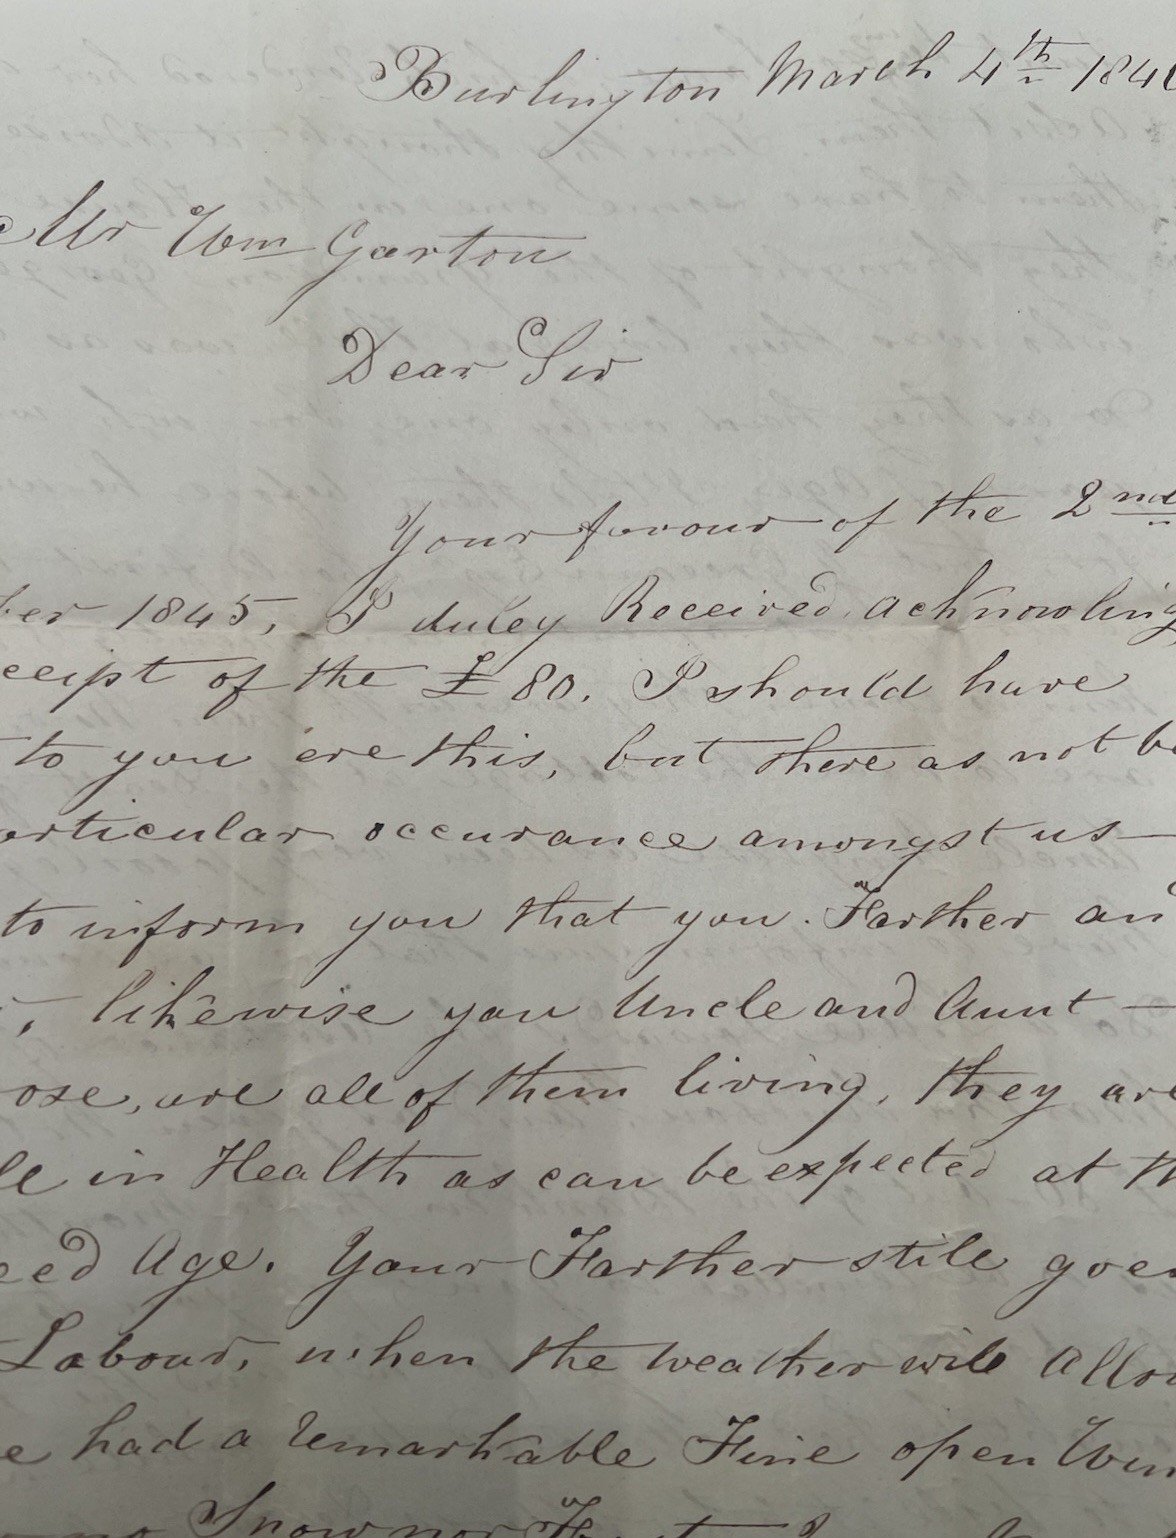 Burlington March 4th 184
Mr Wm Garton
Dear Sir
Your favour of the 2nd
ber 1845, I duley Received, acknowling
ceipt of the £80. I should have
to you ere this, but there as not be
articular occurance amongst us
to inform you that you. Farther and
, likewise you Uncle and Aunt
ose, are all of them living, they are
le in Health as can be expected at th
eed Age. Your Farther stile goes
Labour, when the weather wile Allow
e had a remarkable Fine open Win
no Snow nor